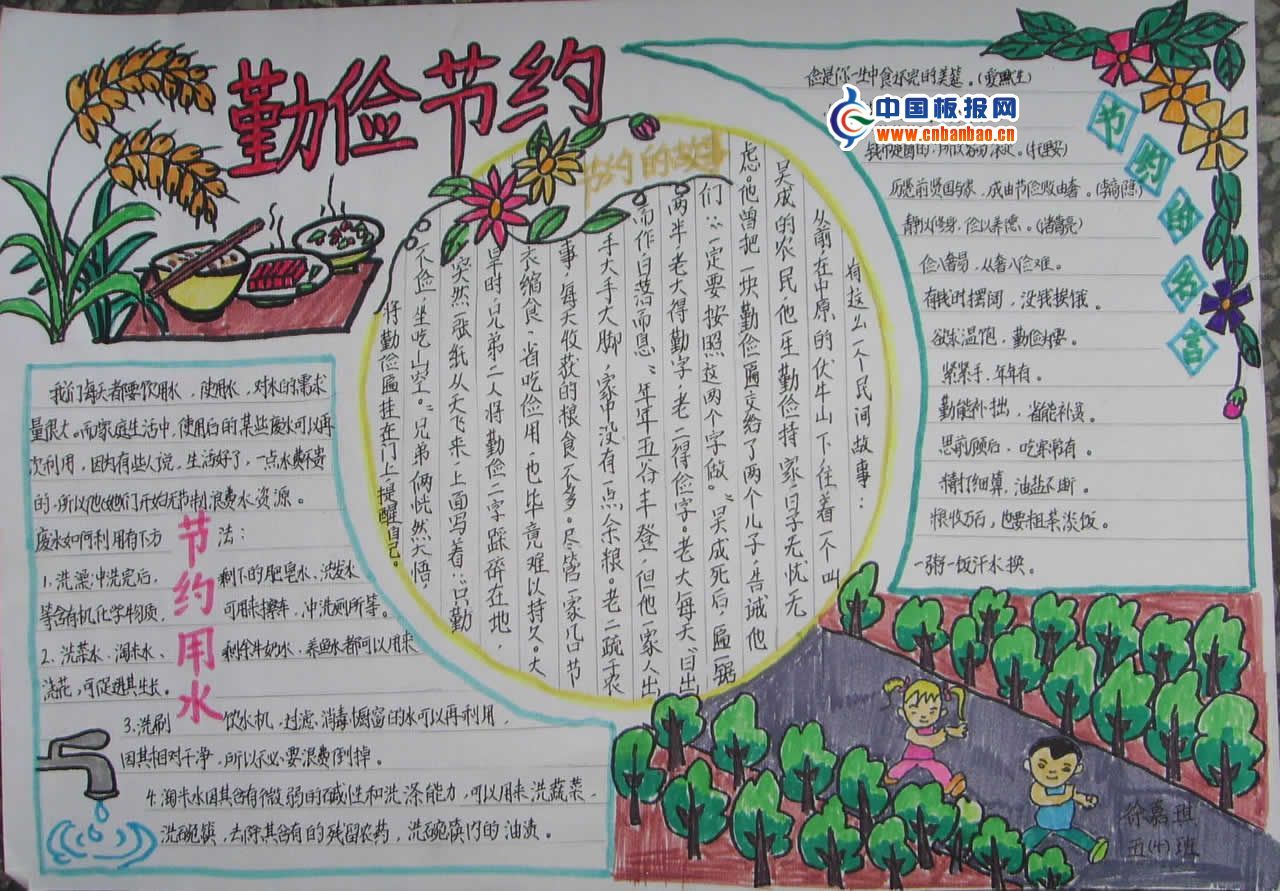 勤俭节约
节约的故事
有这么一个民间故事：
从前，在中原的伏牛山下，住着一个叫
吴成的农民，他一生勤俭持家，日子无忧无
虑。他曾把一块勤俭匾交给了两个儿子，告诫他
们：“一定要按照这两个字做。”吴成死后，匾一锯
两半，老大得勤字，老二得俭字。老大每天“日出
而作，日落而息”，年年五谷丰登，但他一家人出
手大手大脚，家中没有一点余粮。老二疏于农
事，每天收获的粮食不多。尽管一家几口节
衣缩食，省吃俭用，也毕竟难以持久。大
旱时，兄弟二人将勤俭二字踩碎在地，
突然一张纸从天飞来，上面写着：“只勤
不俭，坐吃山空。”兄弟俩恍然大悟，
将勤俭匾挂在门上，提醒自己。
我们每天都要饮用水，使用水，对水的需求
量很大。而家庭生活中，使用后的某些废水可以再
次利用，因为有些人说，生活好了，一点水费不贵
的，所以他们开始无节制浪费水资源。
废水如何利用有下方法：
节约用水
1.洗澡冲洗完后，剩下的肥皂水、洗发水
等含有机化学物质，可用来擦车，冲洗厕所等。
2.洗菜水、淘米水、剩余牛奶水、养鱼水都可以用来
浇花，可促进其生长。
3.洗刷饮水机，过滤、消毒橱窗的水可以再利用，
因其相对干净，所以不必要浪费倒掉。
4.淘米水因其含有微弱的碱性和洗涤能力，可以用来洗蔬菜、
洗碗筷，去除其含有的残留农药，洗碗筷内的油渍。
节约的名言
俭是你一生中食不完的美筵。(爱默生)
中国板报网
www.cnbanbao.cn
历览前贤国与家，成由节俭败由奢。(李商隐)
静以修身，俭以养德。(诸葛亮)
俭入奢易，从奢入俭难。
有钱时摆阔，没钱挨饿。
欲求温饱，勤俭为要。
紧紧手，年年有。
勤能补拙，省能补贫。
思前顾后，吃穿常有。
精打细算，油盐不断。
惊收万石，也要粗茶淡饭。
一粥一饭汗水换。
徐嘉琪
五(4)班